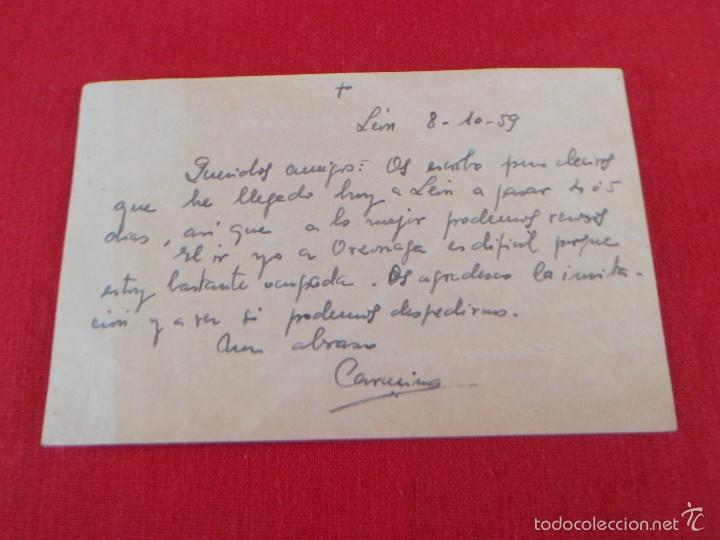 +
León 8-10-59
Queridos amigos: Os escribo para deciros
que he llegado hoy a León a pasar 4 ó 5
dias, así que a lo mejor podemos vernos
El ir yo a es dificil porque
estoy bastante ocupada. Os agradezco la invita-
ción y a ver si podemos despedirnos.
Un abrazo
Carmina
todocoleccion.net